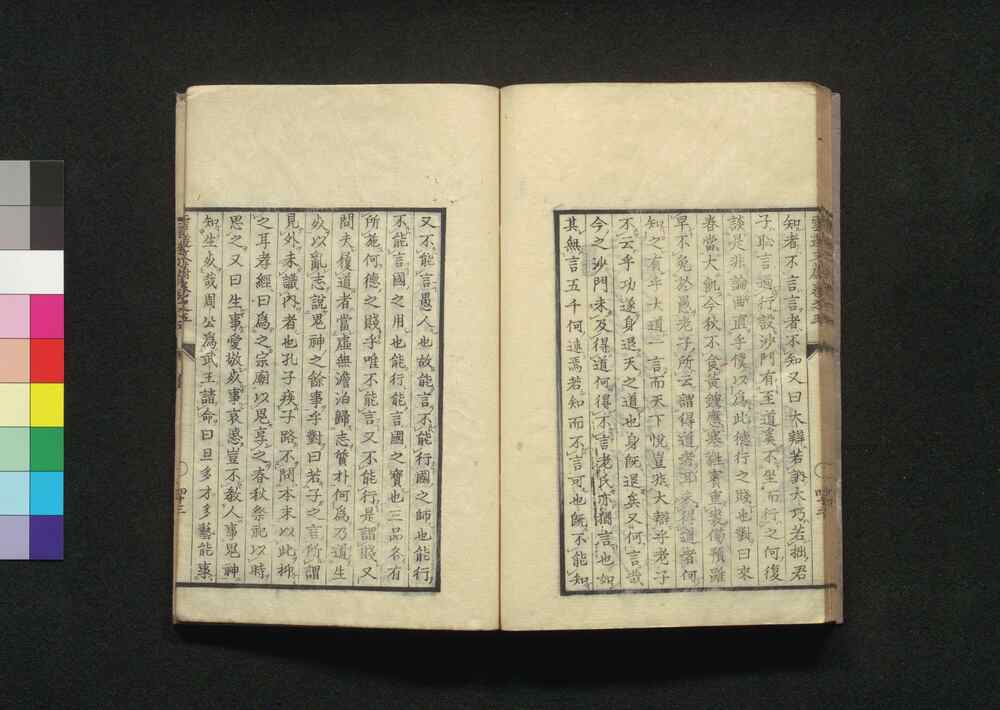 知者不言言者不知又曰大辯若訥大巧若拙君
子恥言過行設沙門有至道奚不坐而行之何復
談是非論曲直乎僕以爲此德行之賤也對曰來
春當大飢今秋不食黃鍾應寒蕤賓重裘備預雖
早不免於愚老子所云謂得道者耳未得道者何
知之有乎大道一言而天下悅豈非大辯乎老子
不云乎功遂身退天之道也身旣退矣又何言哉
今之沙門未及得道何得不言老氏亦猶言也如
其無言五千何述焉若知而不言可也旣不能知
又不能言愚人也故能言不能行國之師也能行
不能言國之用也能行能言國之寶也三品各有
所施何德之賤乎唯不能言又不能行是謂賤又
問夫履道者當虛無澹泊歸志質朴何爲乃道生
死以亂志說鬼神之餘事乎對曰若子之言所謂
見外未識內者也孔子疾子路不問本末以此抑
之耳孝經曰爲之宗廟以鬼享之春秋祭祀以時
思之又曰生事愛敬死事哀慼豈不教人事鬼神
知生死哉周公爲武王請命曰旦多才多藝能事